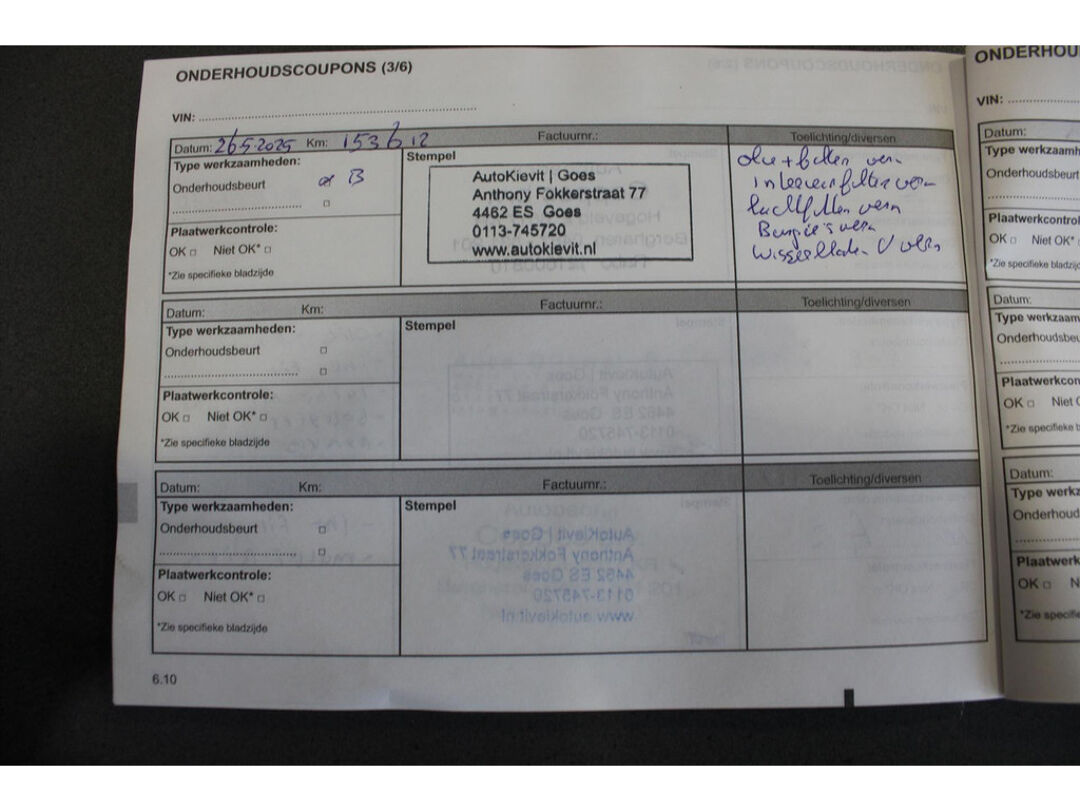 ONDERHOUDSCOUPONS (3/6)
VIN:
Datum: 26-5-2025 Km: 153612 Factuurnr.: Toelichting/diversen
Type werkzaamheden:
Onderhoudsbeurt B
Plaatwerkcontrole:
OK Niet OK*
*Zie specifieke bladzijde
Stempel
AutoKievit | Goes
Anthony Fokkerstraat 77
4462 ES Goes
0113-745720
www.autokievit.nl
olie + filter verv
interieurfilter verv
luchtfilter verv
Bougie's verv
Datum: Km: Factuurnr.: Toelichting/diversen
Type werkzaamheden:
Onderhoudsbeurt
Plaatwerkcontrole:
OK Niet OK*
*Zie specifieke bladzijde
Stempel
Datum: Km: Factuurnr.: Toelichting/diversen
Type werkzaamheden:
Onderhoudsbeurt
Plaatwerkcontrole:
OK Niet OK*
*Zie specifieke bladzijde
Stempel
6.10
ONDERHOU
VIN:
Datum:
Type werkzaamh
Onderhoudsbeurt
Plaatwerkcontrol
OK Niet OK*
*Zie specifieke b
Datum:
Type werkzaam
Onderhoudsbeu
Plaatwerkcon
OK Niet O
*Zie specifieke b
Datum:
Type werkz
Onderhoud
Plaatwerk
OK N
*Zie specifie